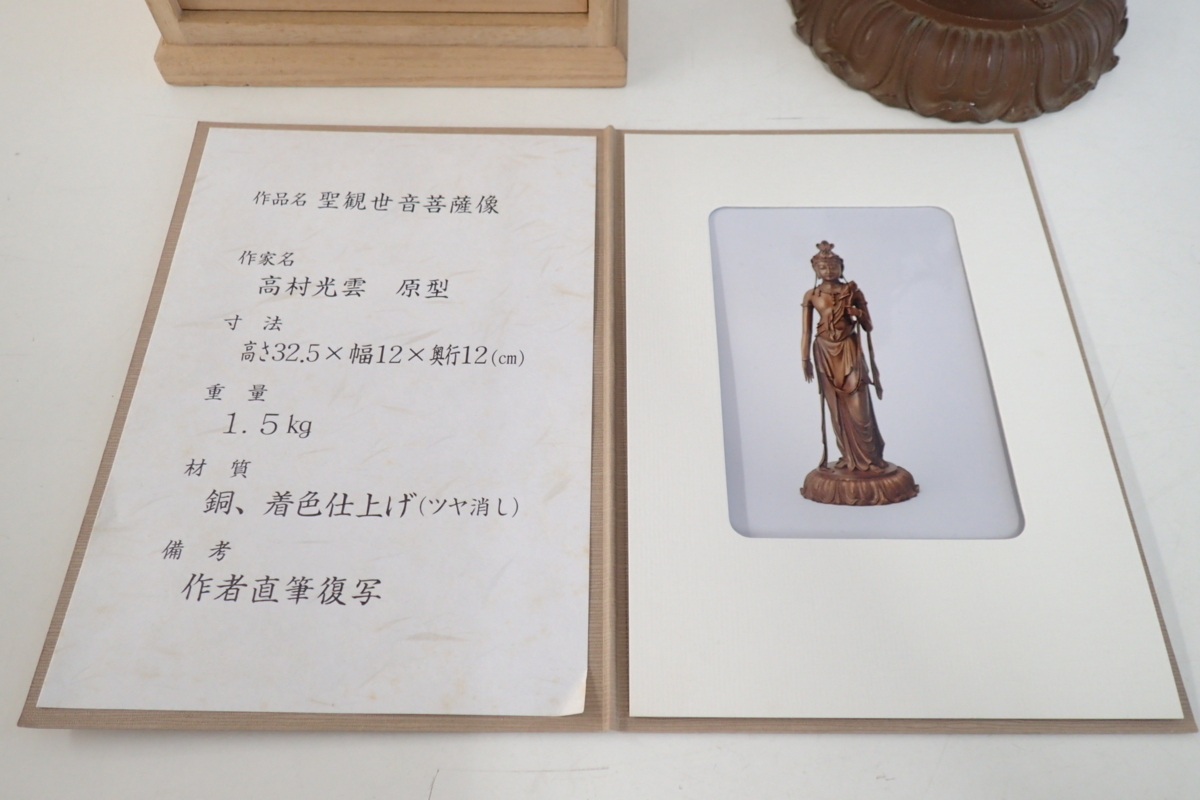 作品名 聖観世音菩薩像
作家名
高村光雲　原型
寸　法
高さ32.5×幅12×奥行12(cm)
重　量
1.5kg
材　質
銅、着色仕上げ(ツヤ消し)
備　考
作者直筆復写